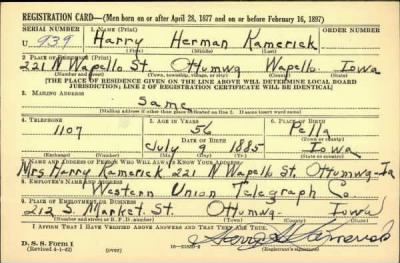 REGISTRATION CARD—(Men born on or after April 28, 1877 and on or before February 16, 1897)
SERIAL NUMBER 1. NAME (Print) ORDER NUMBER
U 939 Harry Herman Kamerick
(First) (Middle) (Last)
2. PLACE OF RESIDENCE (Print)
221 N Wapello St. Ottumwa Wapello Iowa
(Number and street) (Town, township, village, or city) (County) (State)
[THE PLACE OF RESIDENCE GIVEN ON THE LINE ABOVE WILL DETERMINE LOCAL BOARD
JURISDICTION; LINE 2 OF REGISTRATION CERTIFICATE WILL BE IDENTICAL]
3. MAILING ADDRESS
Same
[Mailing address if other than place indicated on line 2. If same insert word same]
4. TELEPHONE 5. AGE IN YEARS 6. PLACE OF BIRTH
1107 56 Pella
DATE OF BIRTH (Town or county)
July 9 1885 Iowa
(Exchange) (Number) (Mo.) (Day) (Yr.) (State or country)
7. NAME AND ADDRESS OF PERSON WHO WILL ALWAYS KNOW YOUR ADDRESS
Mrs Harry Kamerick 221 N Wapello St. Ottumwa-Ia
8. EMPLOYER'S NAME AND ADDRESS
Western Union Telegraph Co.
9. PLACE OF EMPLOYMENT OR BUSINESS
212 S. Market St. Ottumwa- Iowa
(Number and street or R. F. D. number) (Town) (County) (State)
I AFFIRM THAT I HAVE VERIFIED ABOVE ANSWERS AND THAT THEY ARE TRUE.
D. S. S. Form 1
(Revised 4-1-42) (over)
(Registrant's signature)